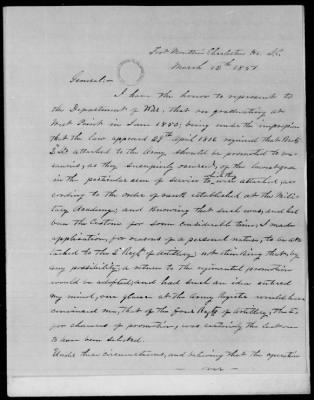 Fort Moultrie Charleston Ho. S.C.
March 12th 1851
General:-
I have the honor to represent to
the Department of War, that on graduating at
West Point in June 1850; being under the impression
that the law approved 29th April 1816 required that Brevt
2 Lts attached to the Army, should be promoted to va-
cancies, as they successively occurred, of the lowest grade
in the particular arm of service to which they were attached, ac-
cording to the order of rank established at the Mili-
tary Academy; and knowing that such was, and had
been the Custom for some considerable time; I made
application, for reasons of a personal nature, to be at-
tached to the 2 Regt of Artillery; not thinking that by
any possibility, a return to the regimental promotion
would be adopted; and had such an idea entered
my mind, one glance at the Army Register would have
convinced me, that of the four Regts of Artillery, this
for chances of promotion, was certainly the last one
to have been selected.
Under these circumstances, and believing that the operation